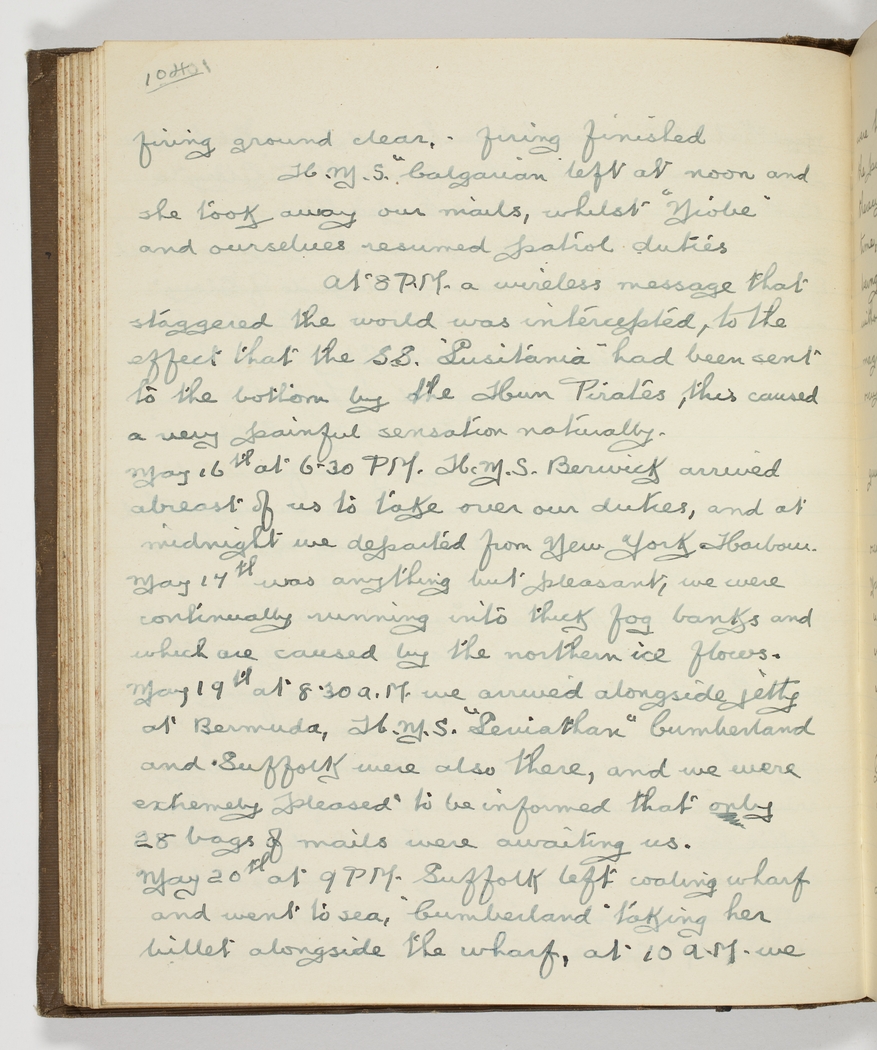 firing ground clear, - firing finished
H.M.S. "Calgarian left at noon and
she took away our mails, whilst "Niobe"
and ourselves resumed patrol duties
at 8 P.M. a wireless message that
staggered the world was intercepted, to the
effect that the SS. "Lusitania" had been sent
to the bottom by the Hun Pirates, this caused
a very painful sensation naturally.
May 16th at 6-30 PM. H.M.S. Berwick arrived
abreast of us to take over our duties, and at
midnight we departed from New York Harbour.
May 17th was anything but pleasant, we were
continually running into thick fog banks and
which are caused by the northern ice flows.
May 19th at 8.30 a.M we arrived alongside jetty
at Bermuda, H.M.S. "Leviathan" Cumberland
and Suffolk were also there, and we were
extremely pleased to be informed that only
28 bags of mails were awaiting us.
May 20th at 9 PM. Suffolk left coaling wharf
and went to sea, "Cumberland" taking her
billet alongside the wharf, at 10 a.M. we